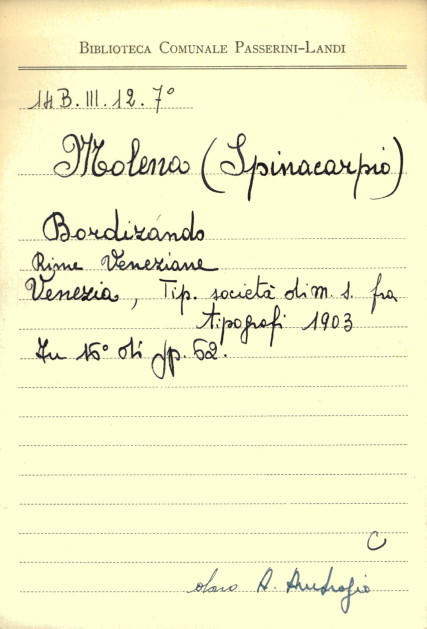 BIBLIOTECA COMUNALE PASSERINI-LANDI
14 B. III. 12. 7°
Molena (Spinacarpio)
Bordizándo
Rime Veneziane
Venezia, Tip. società di m. s. fra
tipografi 1903
In 16° di pp. 62.
C
dono A. Ambrogio